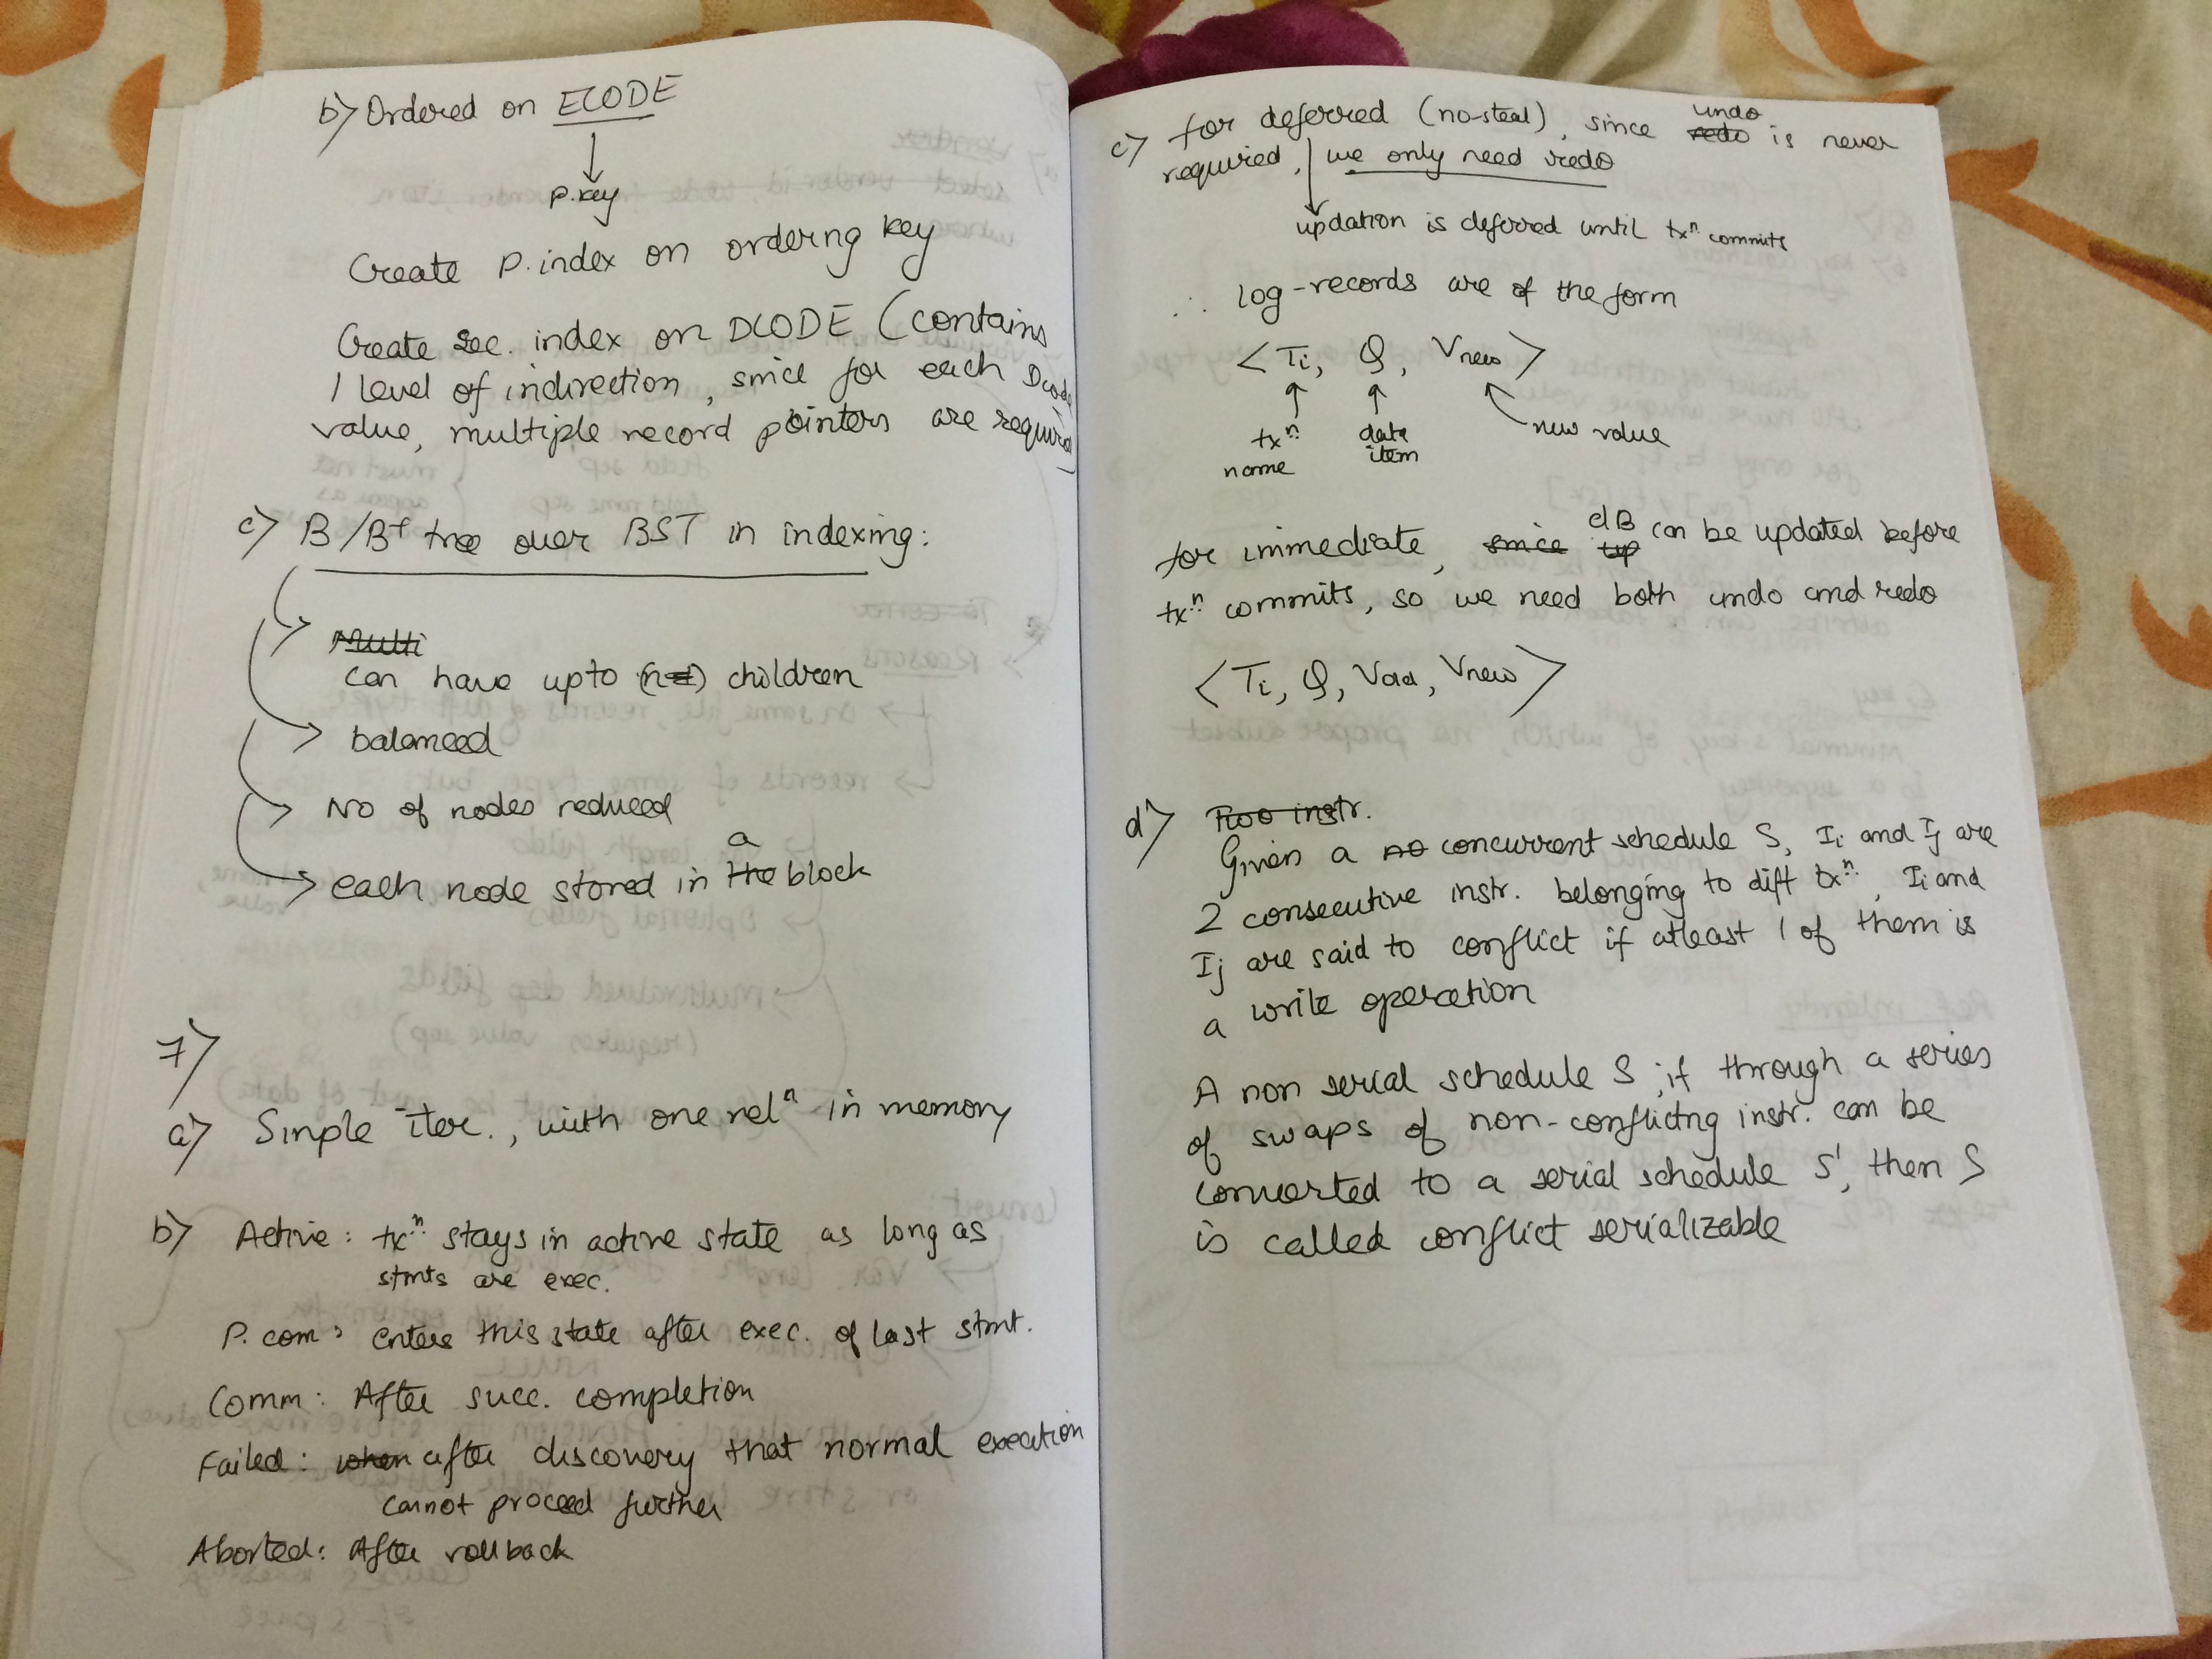 b) Ordered on ECODE
p.key
Create p.index on ordering key
Create sec. index on DCODE (contains
1 level of indirection, since for each Dcode
value, multiple record pointers are required)
c) B/B+ tree over BST in indexing:
Multi
can have upto (n-1) children
balanced
No of nodes reduced
a
each node stored in the block
7)
a) Simple iter., with one relⁿ in memory
b) Active: txⁿ stays in active state as long as
stmts are exec.
P. com: enters this state after exec. of last stmt.
Comm: After succ. completion
Failed: when after discovery that normal execution
cannot proceed further
Aborted: After rollback
c) for deferred (no-steal), since undo redo is never
required, we only need redo
updation is deferred until txⁿ commits
∴ log-records are of the form
< Ti, Q, Vnew >
txⁿ name
data item
new value
for immediate, since up dB can be updated before
txⁿ commits, so we need both undo and redo
< Ti, Q, Vold, Vnew >
d) Two instr.
Given a no concurrent schedule S, Ii and Ij are
2 consecutive instr. belonging to diff txⁿ. Ii and
Ij are said to conflict if atleast 1 of them is
a write operation
A non serial schedule S, if through a series
of swaps of non-conflicting instr. can be
converted to a serial schedule S', then S
is called conflict serializable